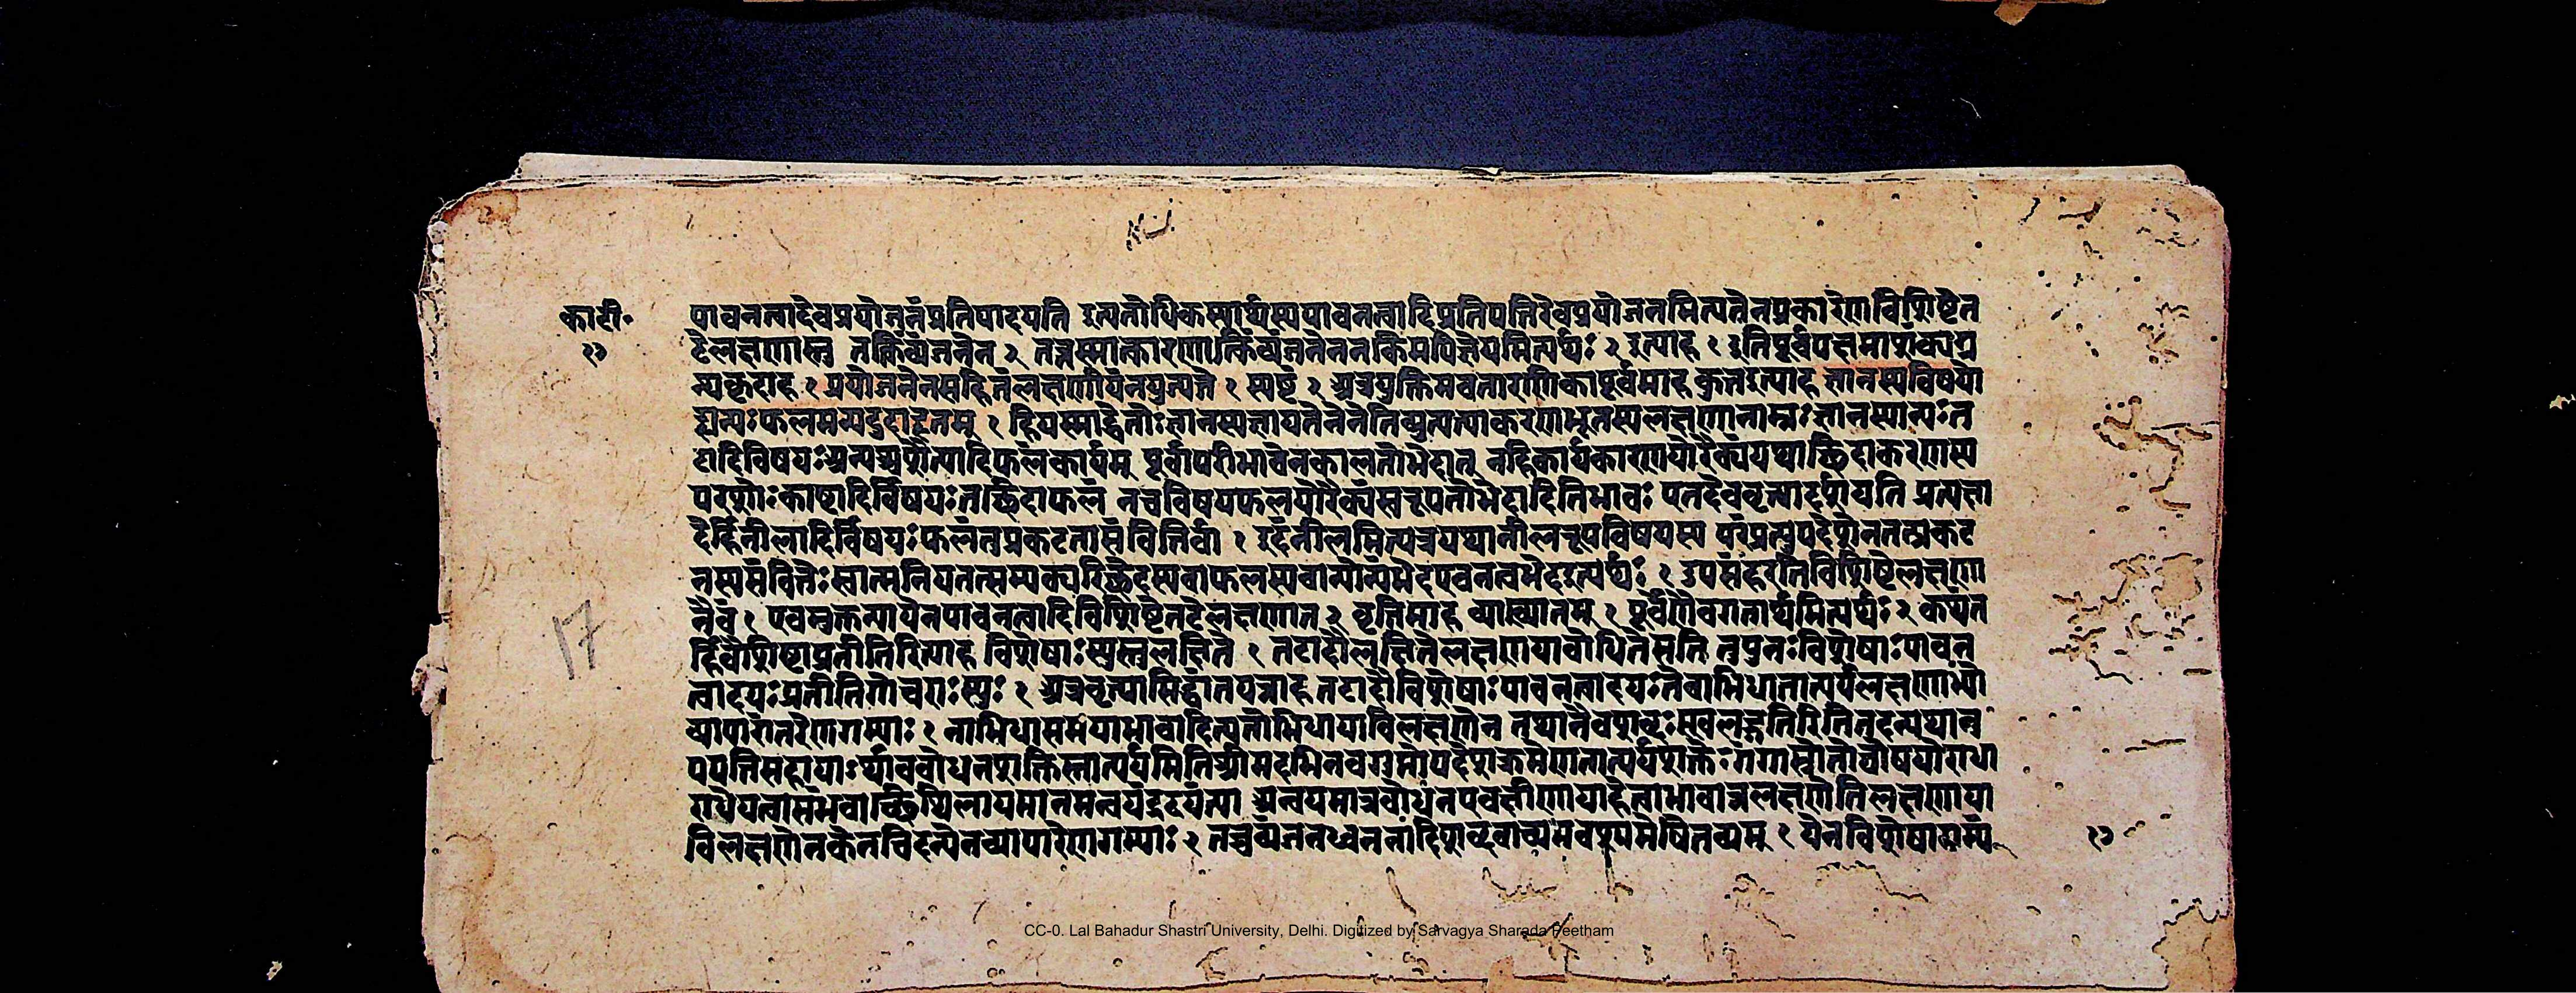 का टी॰
१७
पावनत्वादेवप्रयोजनंप्रतिपादयति इत्यतोधिकस्यार्थस्यपावनत्वादिप्रतिपत्तिरेवप्रयोजनमित्यतेनप्रकारेणविशिष्टेन
टेलक्षणास्तु तत्किंव्यंजनेन २ तत्तस्मात्कारणात्किंव्यंजनेननकिमपिज्ञेयमित्यर्थः २ इत्याह १ इतिपूर्वपक्षमाशंक्यप्र
त्यकृदाह १ प्रयोजनेनसहितंलक्षणीयंनयुज्यते १ स्पष्टं २ अत्रयुक्तिमवतारणिकापूर्वमाह कुतइत्याह ज्ञानस्यविषयो
ह्यन्यःफलमन्यदुदाहृतम् १ हियस्माद्धेतोःज्ञानस्यज्ञायतेनेनेतिव्युत्पत्याकरणभूतस्यलक्षणानाम्नःज्ञानस्यान्यःत
टादिविषयःअन्यच्चशैत्यादिफलंकार्यम् पूर्वापरीभावेनकालतोभेदात् नहिकार्यकारणयोरैक्यंयथाछिदाकरणस्य
परशोःकाष्टादिर्विषयःतच्छिदाफलं नचविषयफलयोरैक्यंस्वरूपतोभेदादितिभावः एतदेववृत्त्यादर्शयति प्रत्यक्षा
देर्हिनीलादिर्विषयःफलंतुप्रकटतासंवित्तिर्वा १ इदंनीलमित्यत्रयथानीलरूपविषयस्य परंप्रत्युपदेशेनतत्प्रकट
तस्यसंवित्तेःस्वात्मनियतत्सम्यक्परिच्छेदस्यवाफलस्यवान्योन्यभेदएवनत्वभेदइत्यर्थः १ उपसंहरतिविशिष्टेलक्षणा
नैवं १ एवमुक्तन्यायेनपावनत्वादिविशिष्टेनटेलक्षणान २ वृत्तिमाह व्याख्यातम् १ पूर्वेणैवगतार्थमित्यर्थः २ कथंत
र्हिवैशिष्टाप्रतीतिरित्याह विशेषाःस्युस्तुलक्षिते १ तटादौलक्षितेलक्षणयाबोधितेसति तुपुनःविशेषाःपावन
त्वादयःप्रतीतिगोचराःस्युः १ अत्रवृत्त्यासिद्धांतयन्नाह तटादौविशेषाःपावनत्वादयःतेचाभिधातात्पर्यलक्षणाभ्यो
व्यापारांतरेणगम्याः १ नाभिधासमयाभावादित्यतोभिधायाविलक्षणेन तथानैवशब्दःस्खलद्गतिरितितदन्यथानु
पपत्तिसहायाऽर्थावबोधनशक्तिस्तात्पर्यमितिश्रीमदभिनवगुप्तोपदेशक्रमेणतात्पर्यशक्तेःगंगास्त्रोतोघोषयोराधा
राधेयत्वासंभवाच्छिथिलायमानमन्वयंद्रढयंत्या अन्वयमात्रबोधनएवक्षीणायाहेत्वाभावान्नलक्षणेतिलक्षणाया
विलक्षणेनकेनचिदन्येनव्यापारेणगम्याः २ तच्चव्यंजनध्वननादिशब्दवाच्यमवश्यमेषितव्यम् १ येनविशेषागम्यं
१७
17
CC-0. Lal Bahadur Shastri University, Delhi. Digitized by Sarvagya Sharada Peetham